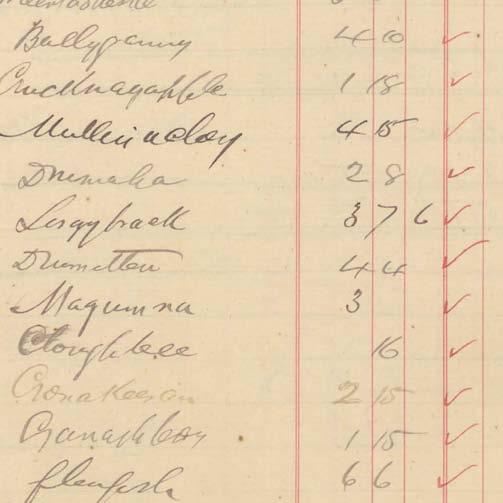 Ballyganny 4 0
Crucknagapple 1 18
Mullinacloy 4 15
Drumaha 2 8
Lergybrack 3 7 6
Drumatten 4 4
Magumna 3
Cloughbee 16
Cronakeeran 2 15
1 15
Glenfish 6 6